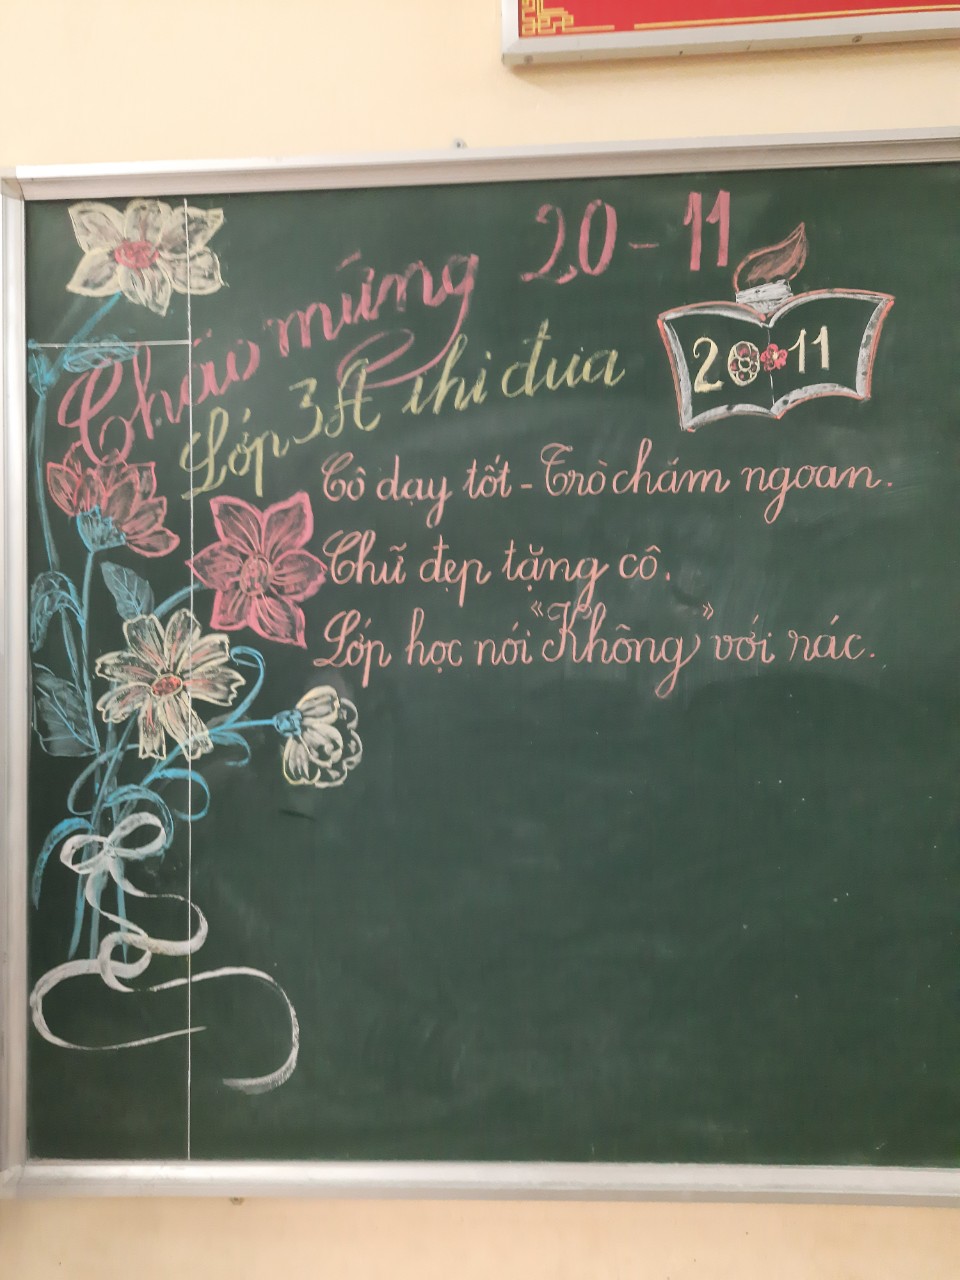 Chào mừng 20-11
Lớp 3A thi đua
20 11
Cô dạy tốt - Trò chăm ngoan.
Chữ đẹp tặng cô.
Lớp học nói "Không" với rác.